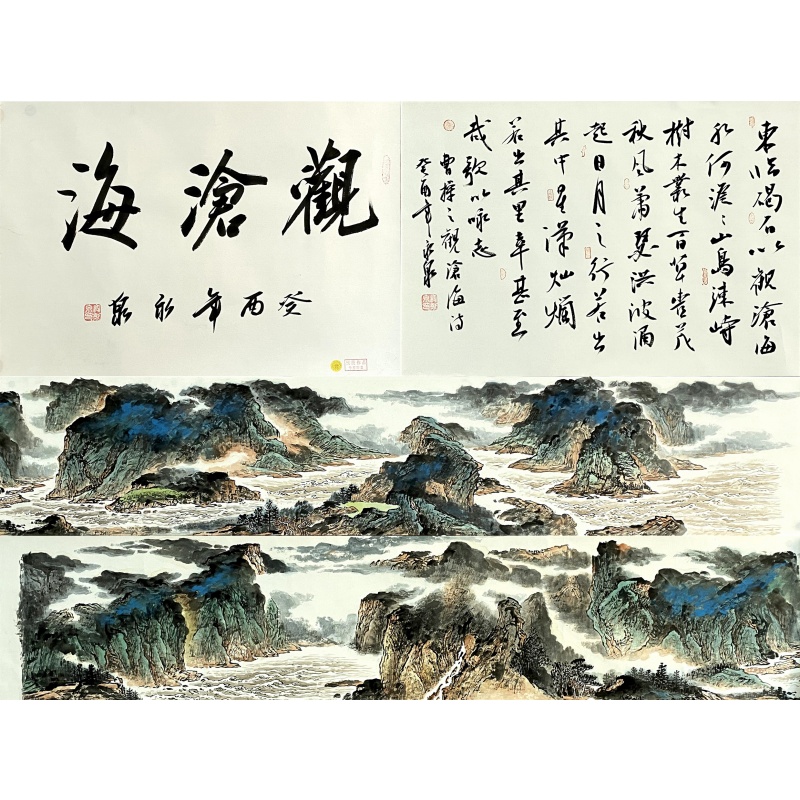 觀滄海
癸酉年永泉
東临碣石以觀滄海
水何澹〻山島竦峙
樹木叢生百草豐茂
秋风蕭瑟洪波涌
起日月之行若出
其中星漢灿爛
若出其里幸甚至
哉歌以咏志
曹操之觀滄海诗
癸酉年永泉